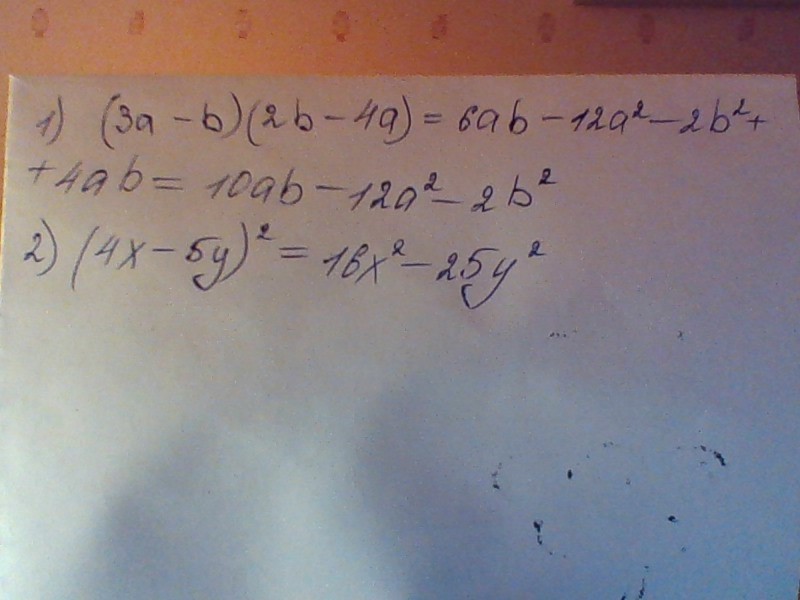 1) (3a - b)(2b - 4a) = 6ab - 12a² - 2b² +
+ 4ab = 10ab - 12a² - 2b²
2) (4x - 5y)² = 16x² - 25y²